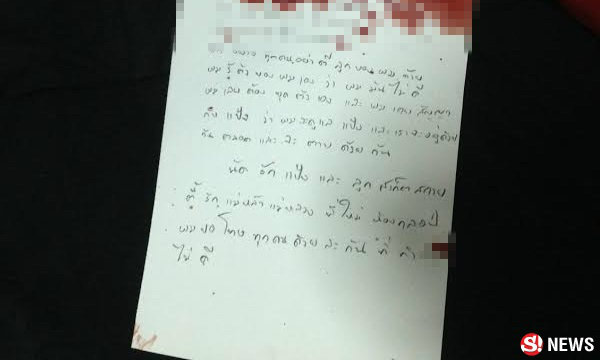 ทุกคนอย่าตี ลูก ของ ผม
ผม รู้ ตัว ของ ผม เอง ว่า ผม มัน ไม่ ดี
ผม เลย ต้อง ตัว เอง และ ผม เคย สัญญา
กับ แป้ง ว่า ผม จะดูแล แป้ง และ เราจะอยู่ด้วย
กัน ตลอด และ จะ ตาย ด้วย กัน
รัก แป้ง และ ลูก
รัก แม่หล้า แม่หลวง พี่ใหม่ น้อง
ผม ขอ โทษ ทุก คน ด้วย ละ กัน ที่ ทำ
ไม่ ดี
S! NEWS